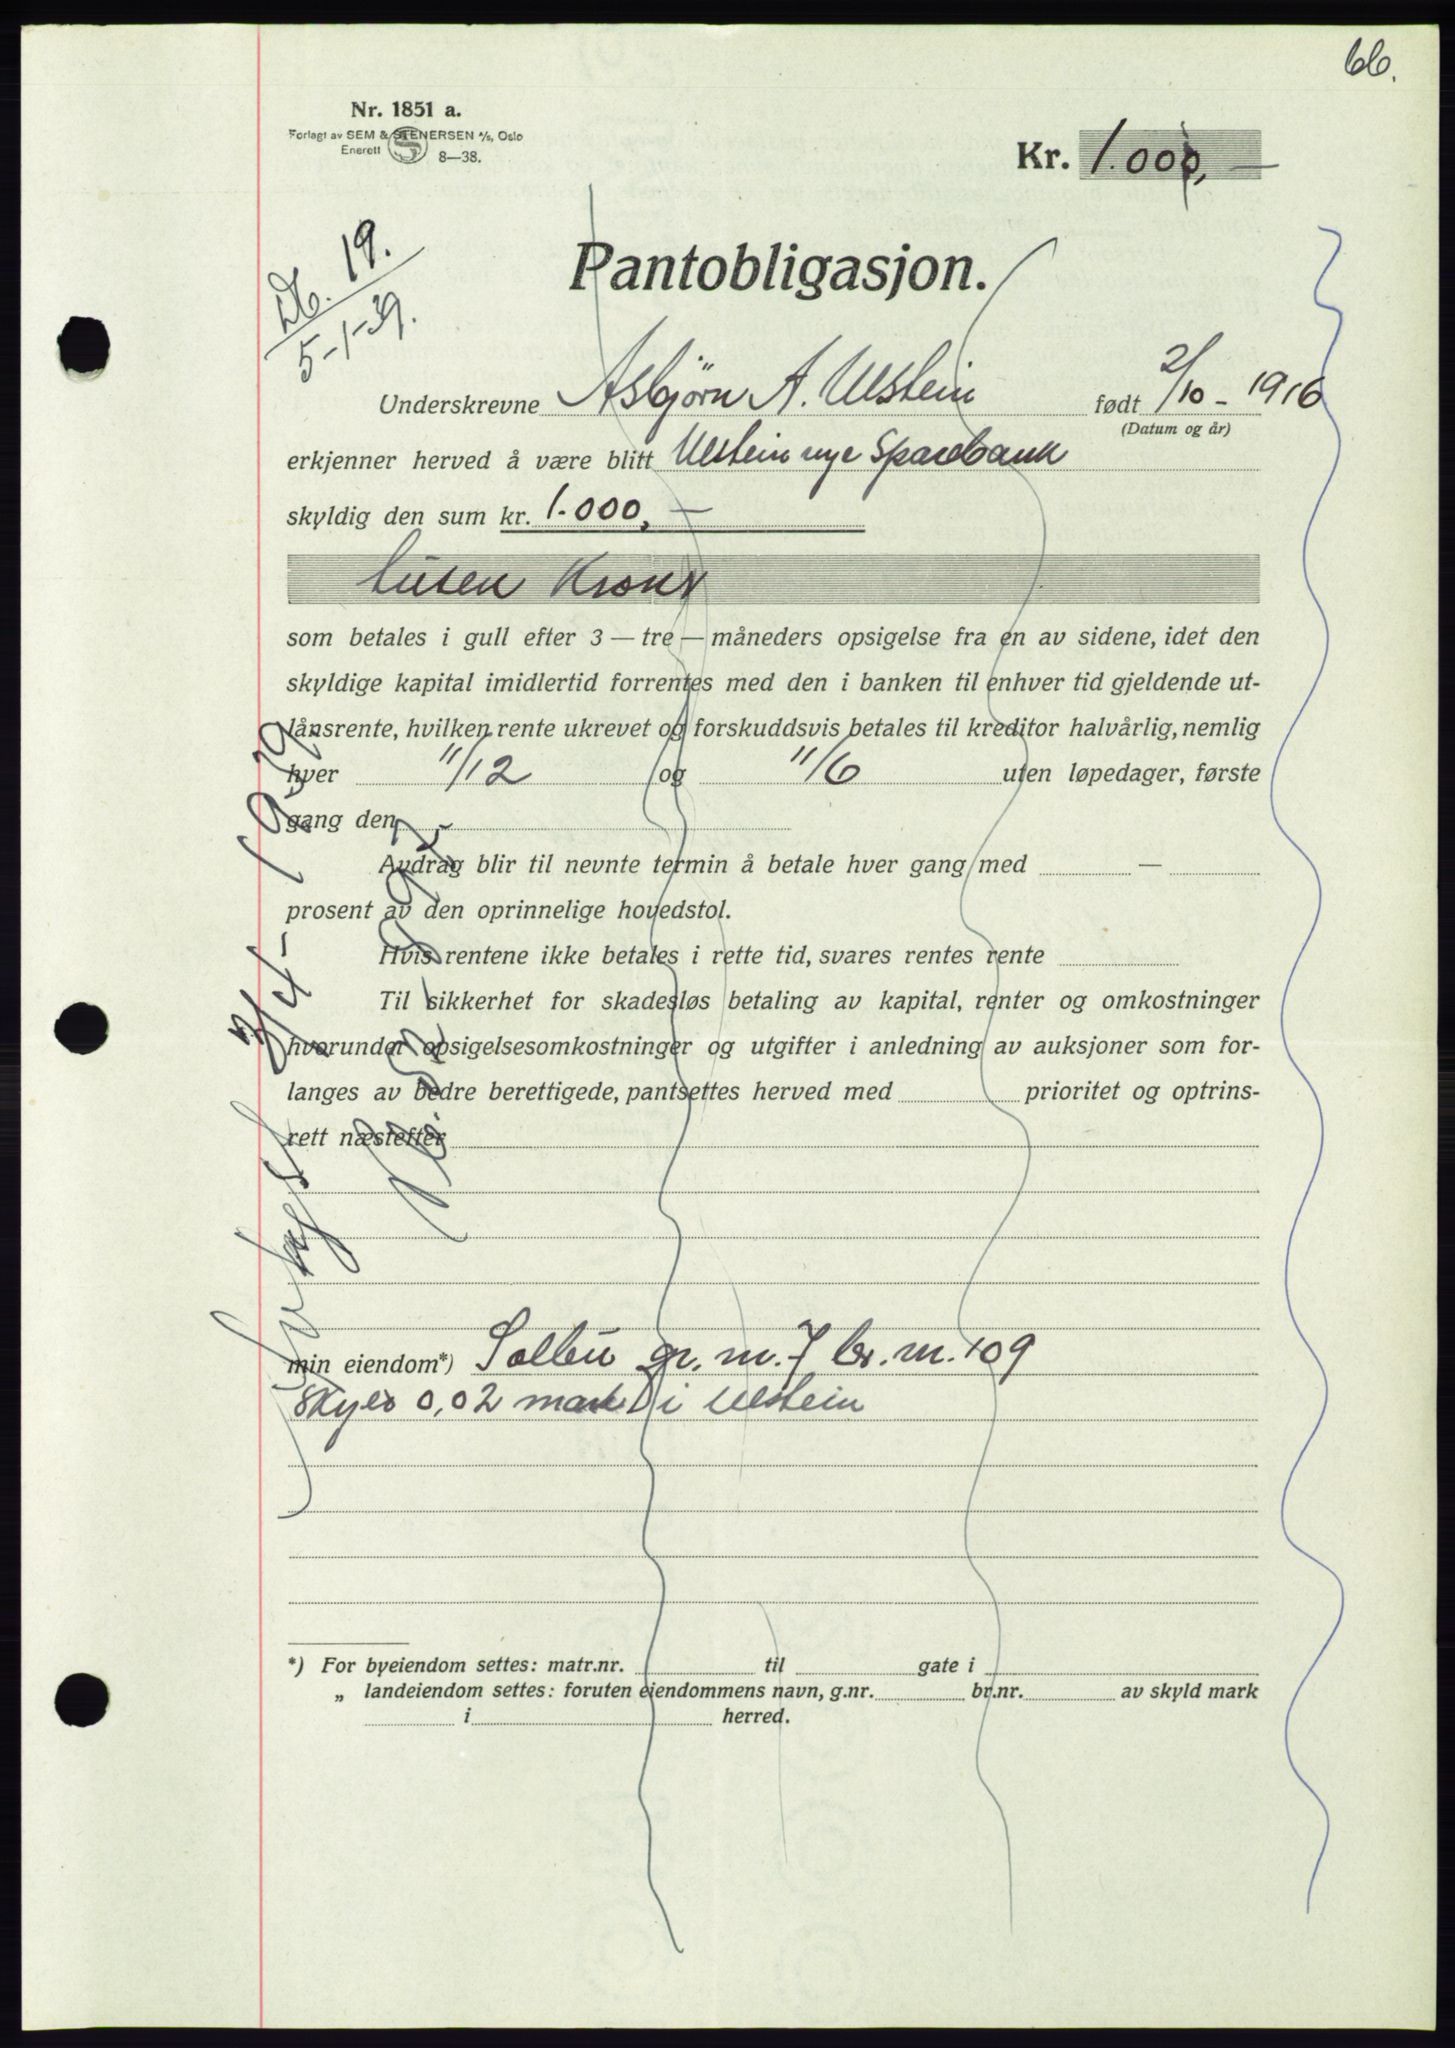 66.
Nr. 1851 a.
Forlagt av SEM & STENERSEN A/S, Oslo
Enerett
8—38.
Kr. 1.000,—
Pantobligasjon.
Db. 19.
5-1-39.
Underskrevne Asbjørn A. Ulstein født 2/10 - 1916
(Datum og år)
erkjenner herved å være blitt Ulstein nye Sparebank
skyldig den sum kr. 1.000,—
tusen kroner
som betales i gull efter 3 — tre — måneders opsigelse fra en av sidene, idet den
skyldige kapital imidlertid forrentes med den i banken til enhver tid gjeldende ut-
lånsrente, hvilken rente ukrevet og forskuddsvis betales til kreditor halvårlig, nemlig
hver 11/12 og 11/6 uten løpedager, første
gang den
Avdrag blir til nevnte termin å betale hver gang med —
prosent av den oprinnelige hovedstol.
Hvis rentene ikke betales i rette tid, svares rentes rente
Til sikkerhet for skadesløs betaling av kapital, renter og omkostninger
hvorunder opsigelsesomkostninger og utgifter i anledning av auksjoner som for-
langes av bedre berettigede, pantsettes herved med prioritet og optrins-
rett næstefter
min eiendom*) Solbu gr. nr. 7 br. nr. 109
skyld 0,02 mark i Ulstein
*) For byeiendom settes: matr.nr. til gate i
„ landeiendom settes: foruten eiendommens navn, g.nr. br.nr. av skyld mark
i herred.